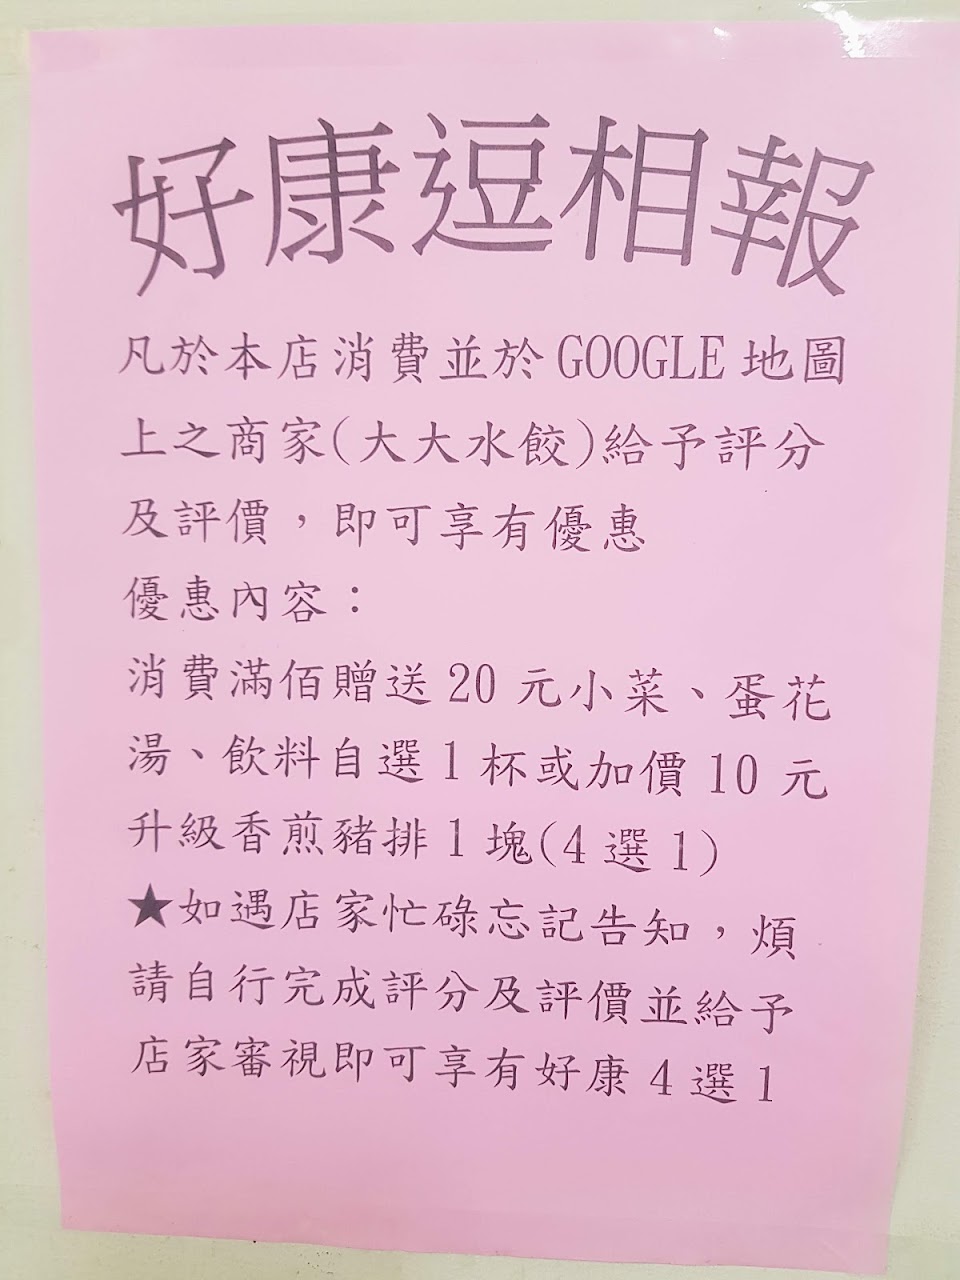 好康逗相報
凡於本店消費並於GOOGLE地圖
上之商家(大大水餃)給予評分
及評價，即可享有優惠
優惠內容：
消費滿佰贈送20元小菜、蛋花
湯、飲料自選1杯或加價10元
升級香煎豬排1塊(4選1)
★如遇店家忙碌忘記告知，煩
請自行完成評分及評價並給予
店家審視即可享有好康4選1